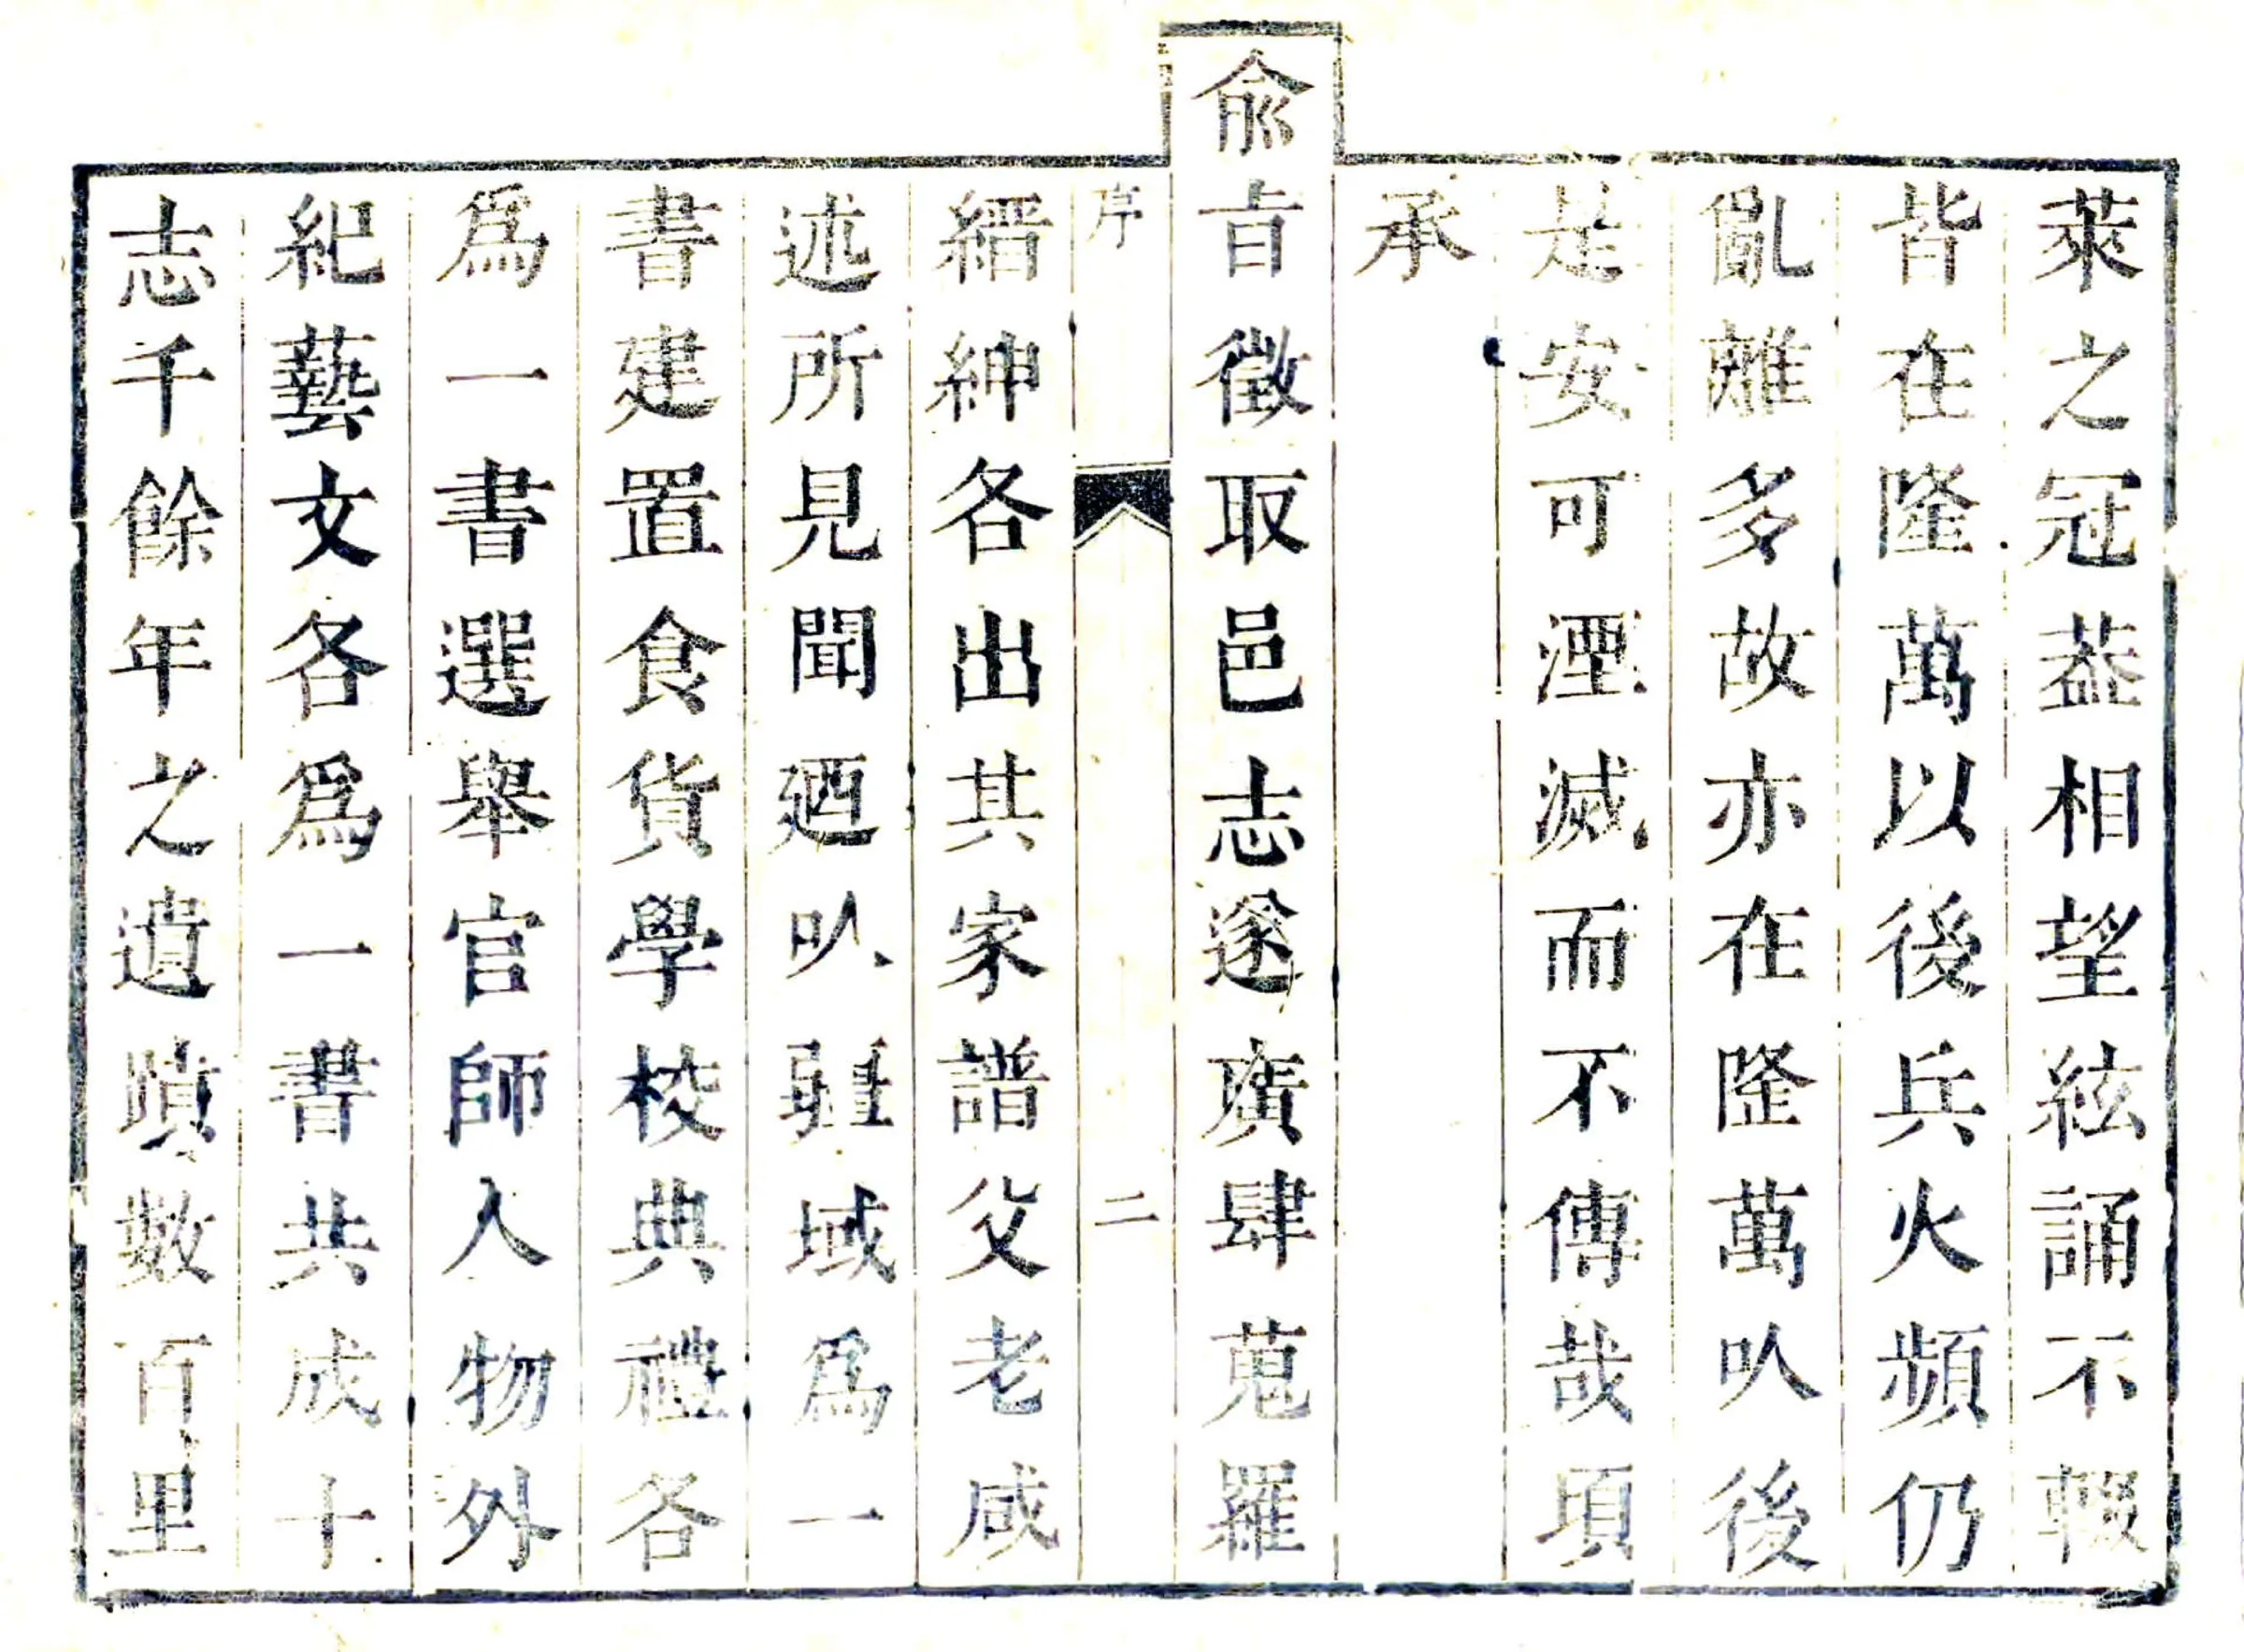 萊之冠葢相望絃誦不輟
皆在隆萬以後兵火頻仍
亂離多故亦在隆萬㕥後
是安可湮滅而不傳哉項
承
兪㫖徵取邑志遂廣肆蒐羅
序
二
縉紳各出其家譜父老咸
述所見聞廼㕥疆域爲一
書建置食貨學校典禮各
爲一書選舉官師人物外
紀藝文各爲一書共成十
志千餘年之遺蹟數百里